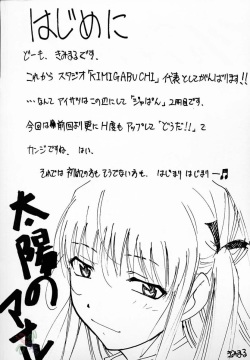 はじめに
どーも、きみまるです。
これから スタジオ「KIMIGABUCHI」代表としてがんばります!!
…なんて アイサツはこの辺にして「じゃぱん」2冊目です。
今回は前回より更に H度も アップして「どうだ!!」って
カンジですね、はい。
それでは 初めての方も そうでない方も、はじまり はじまりー♫
太陽の
きみまる